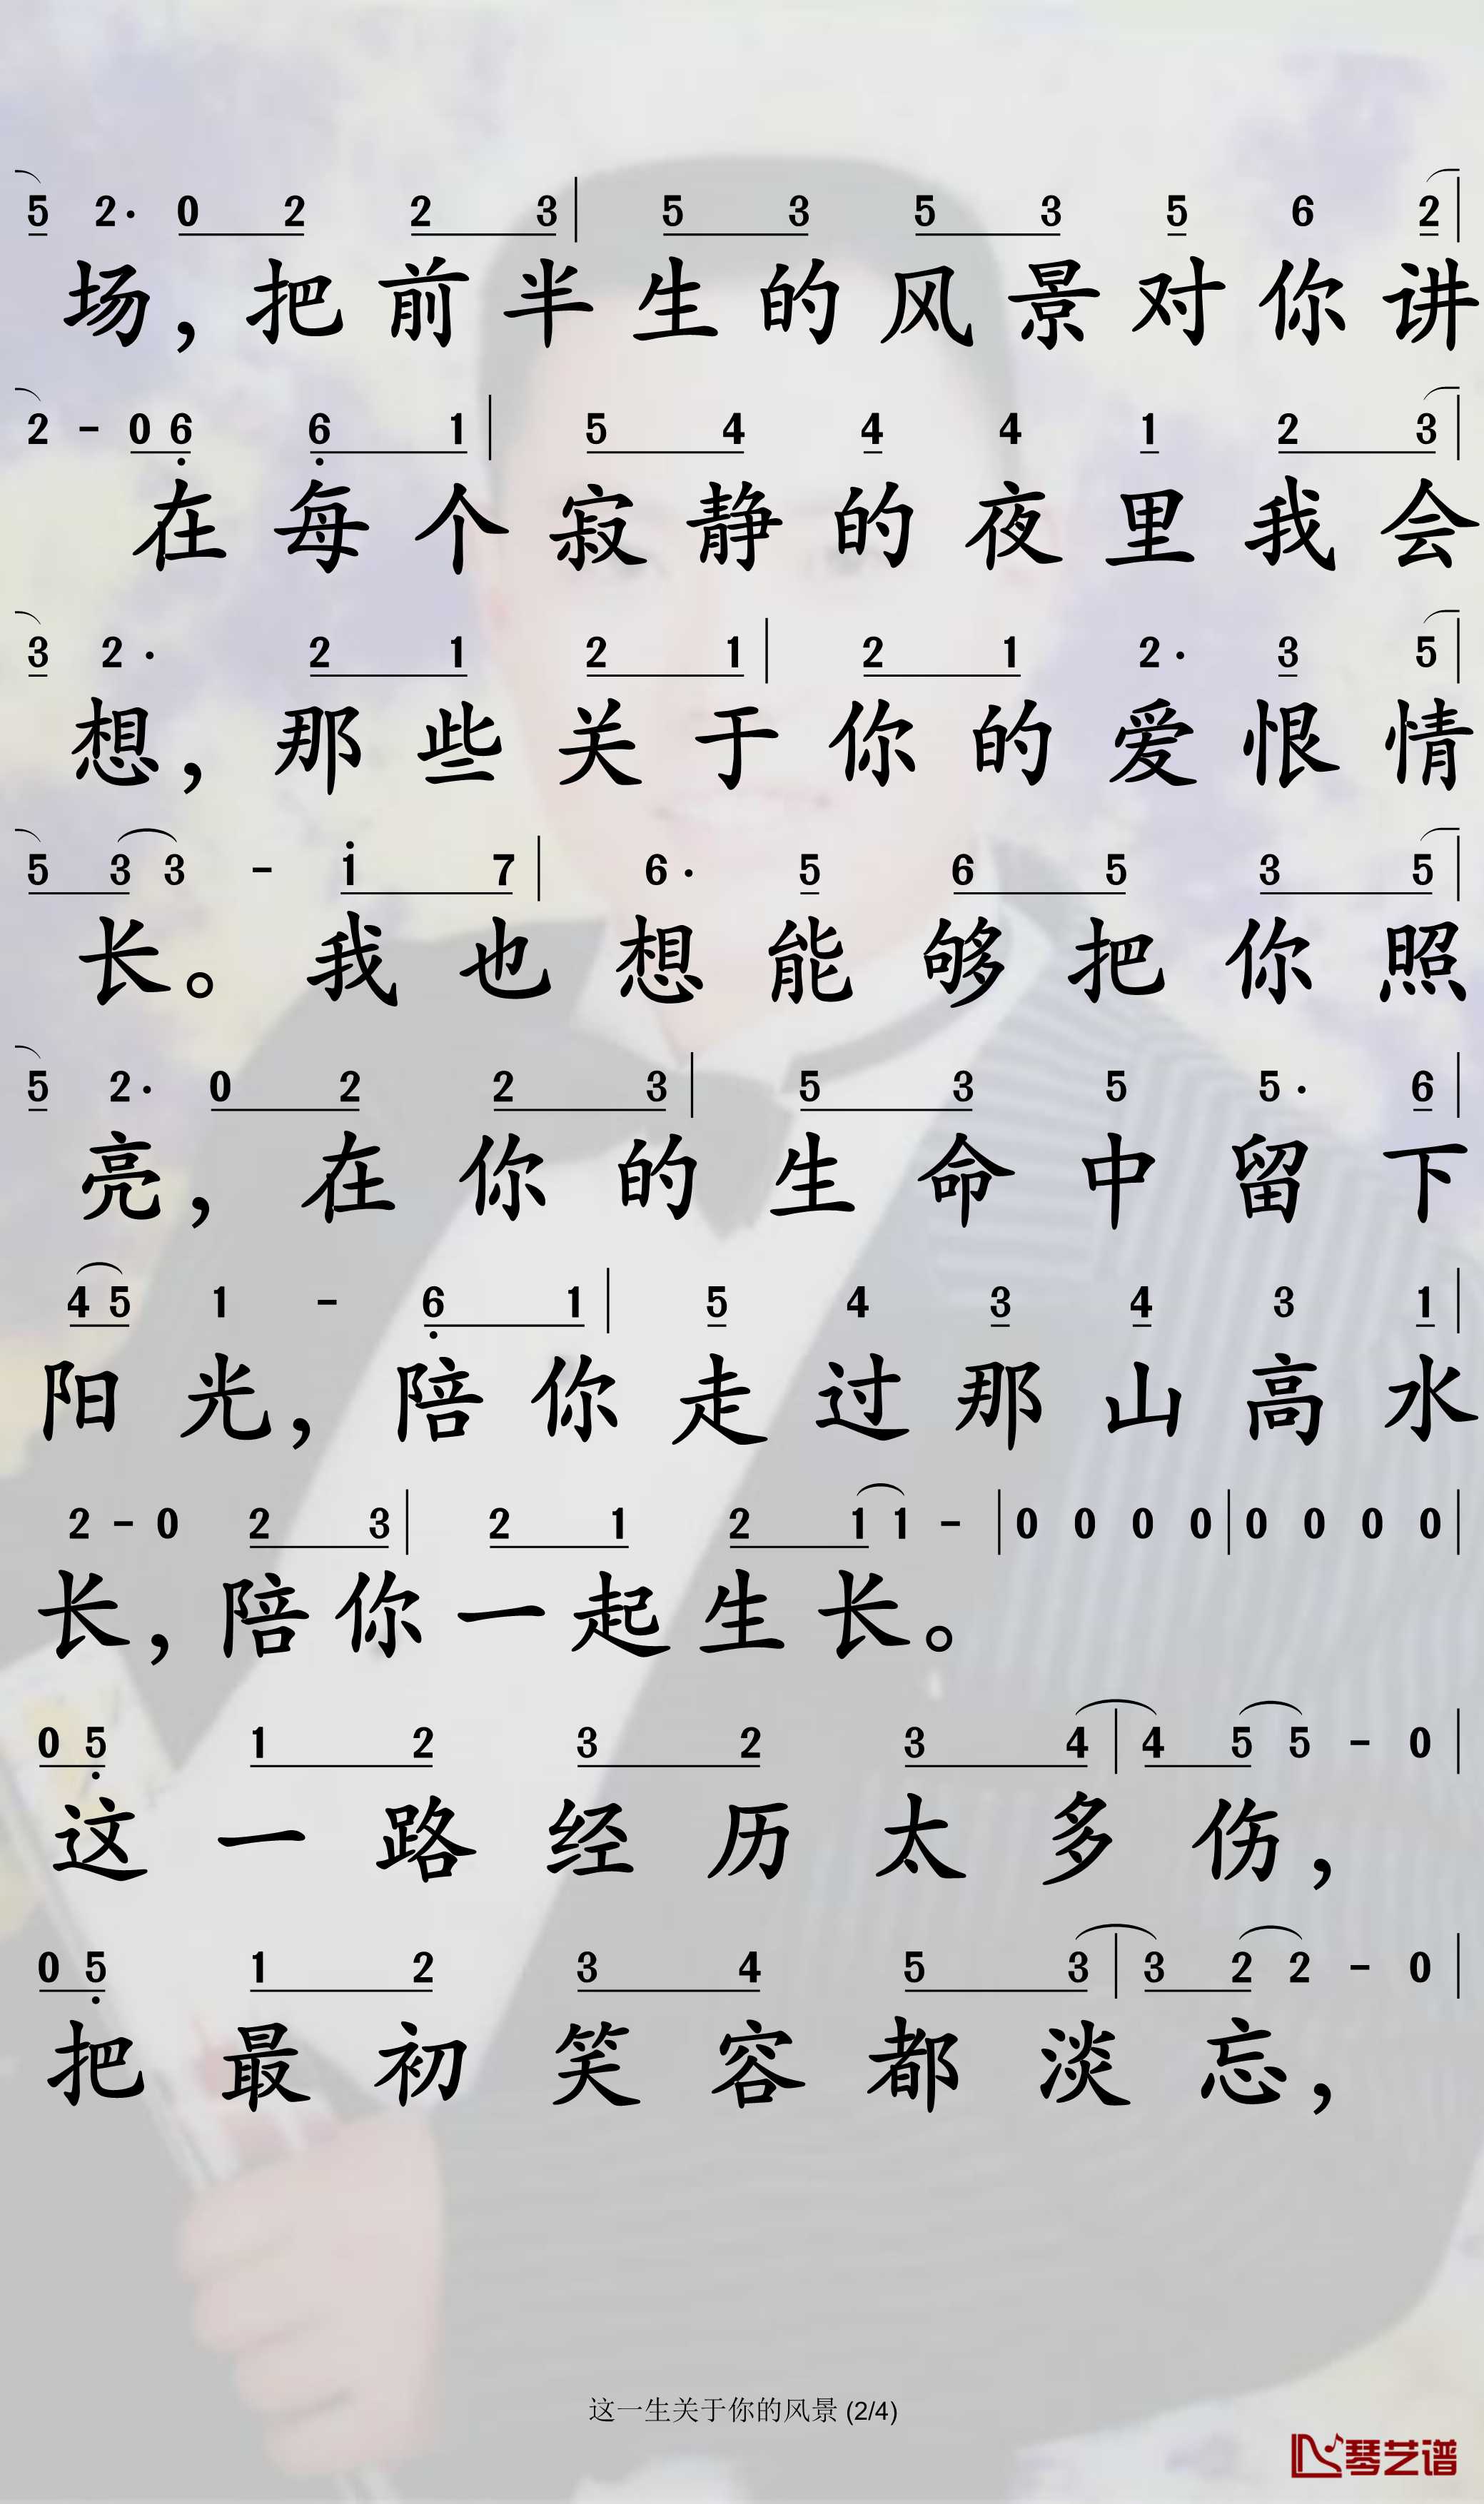 5 2· 0 2 2 3 | 5 3 5 3 5 6 2 |
场，把前半生的风景对你讲
2 - 0 6 6 1 | 5 4 4 4 1 2 3 |
在每个寂静的夜里我会
3 2· 2 1 2 1 | 2 1 2· 3 5 |
想，那些关于你的爱恨情
5 3 3 - 1 7 | 6· 5 6 5 3 5 |
长。我也想能够把你照
5 2· 0 2 2 3 | 5 3 5 5· 6 |
亮，在你的生命中留下
4 5 1 - 6 1 | 5 4 3 4 3 1 |
阳光，陪你走过那山高水
2 - 0 2 3 | 2 1 2 1 1 - | 0 0 0 0 | 0 0 0 0 |
长，陪你一起生长。
0 5 1 2 3 2 3 4 | 4 5 5 - 0 |
这一路经历太多伤，
0 5 1 2 3 4 5 3 | 3 2 2 - 0 |
把最初笑容都淡忘，
这一生关于你的风景 (2/4)
琴艺谱